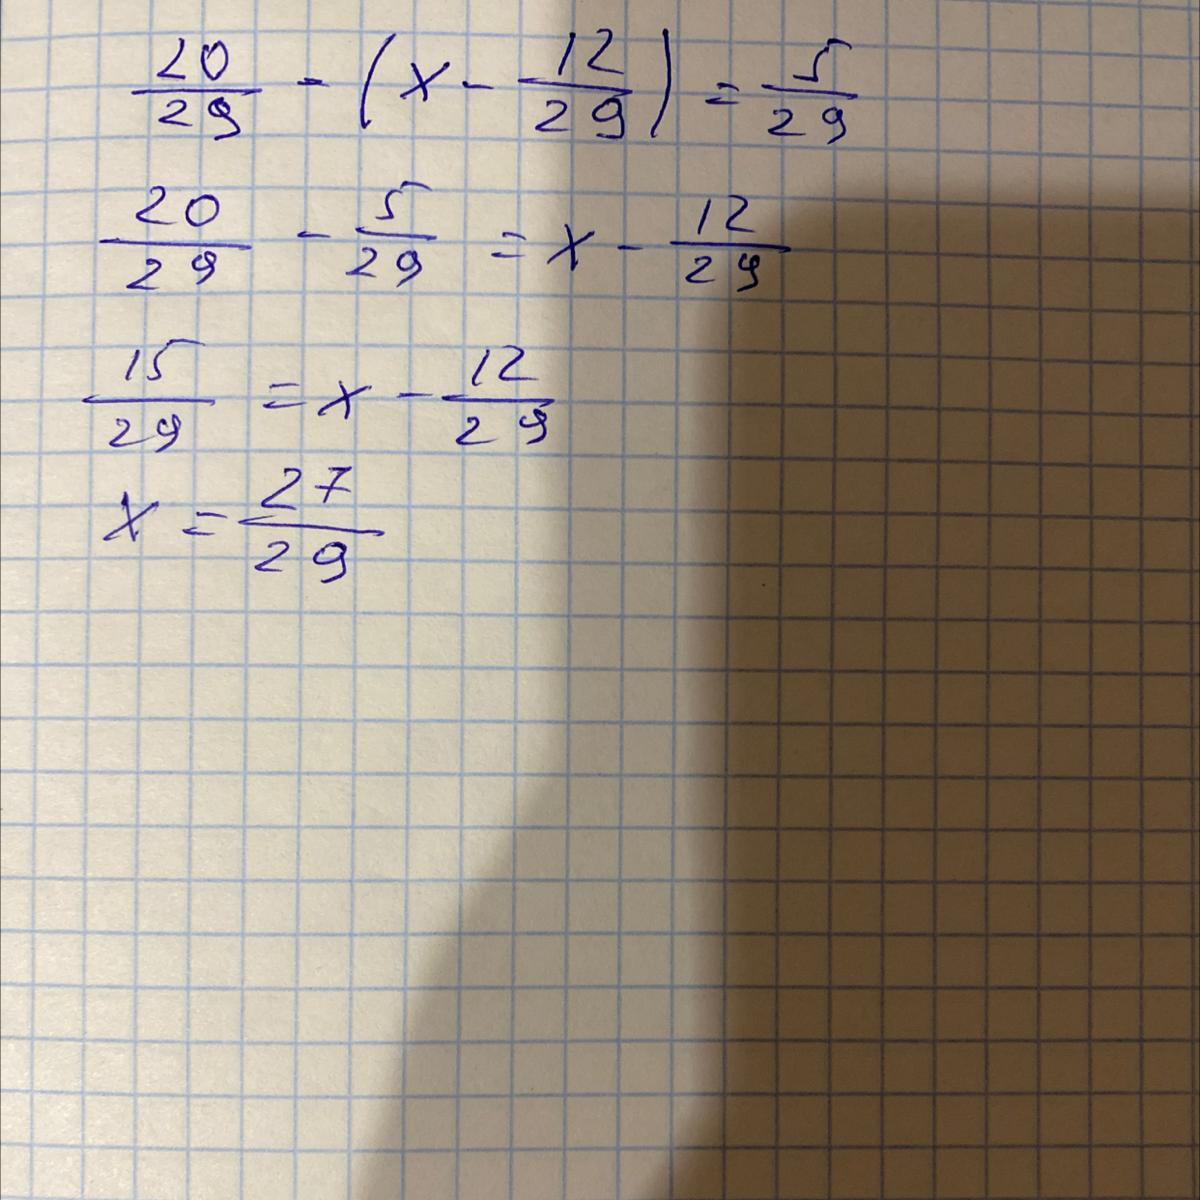 20/29 - (x - 12/29) = 5/29
20/29 - 5/29 = x - 12/29
15/29 = x - 12/29
x = 27/29